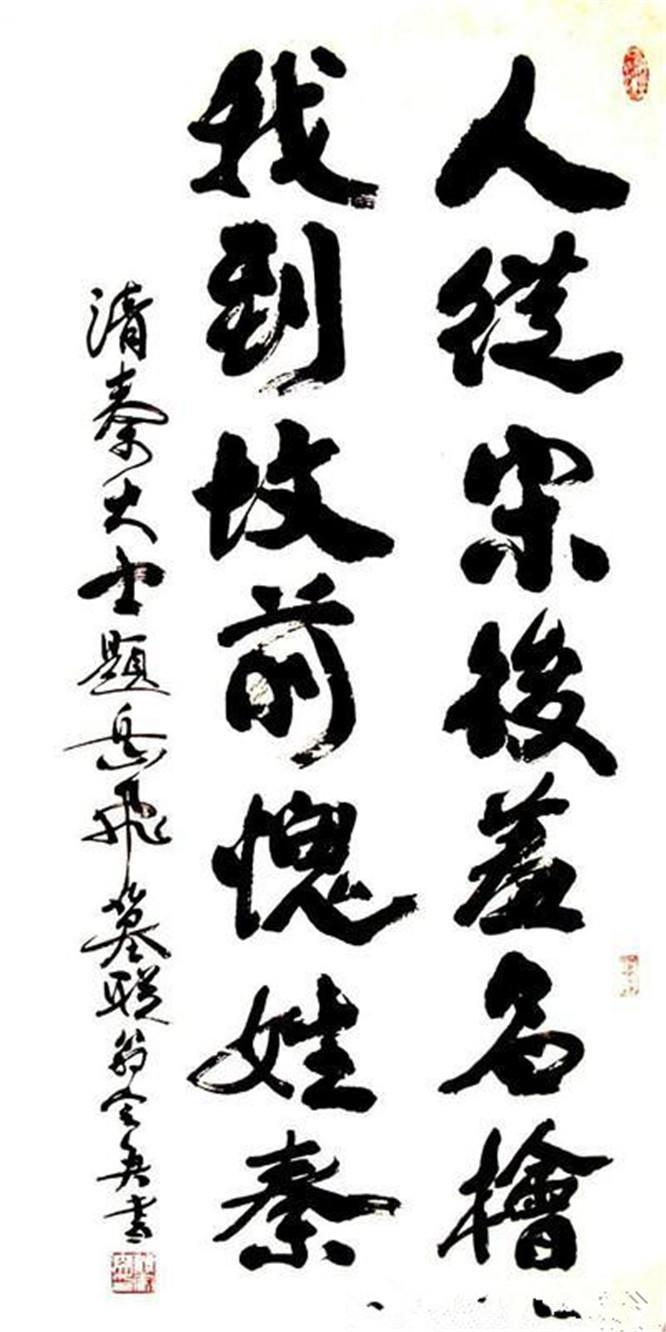 人從宋後羞名檜
我到坟前愧姓秦
清秦大士題岳飛墓联翁令勇書